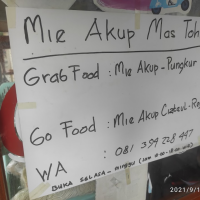 Mie Akup Mas Toh
Grab Food : Mie Akup - Pungkur
Go Food : Mie Akup Ciateul - Re
WA : 081 394 228 447
BUKA SELASA - MINGGU (JAM
2021/9/1